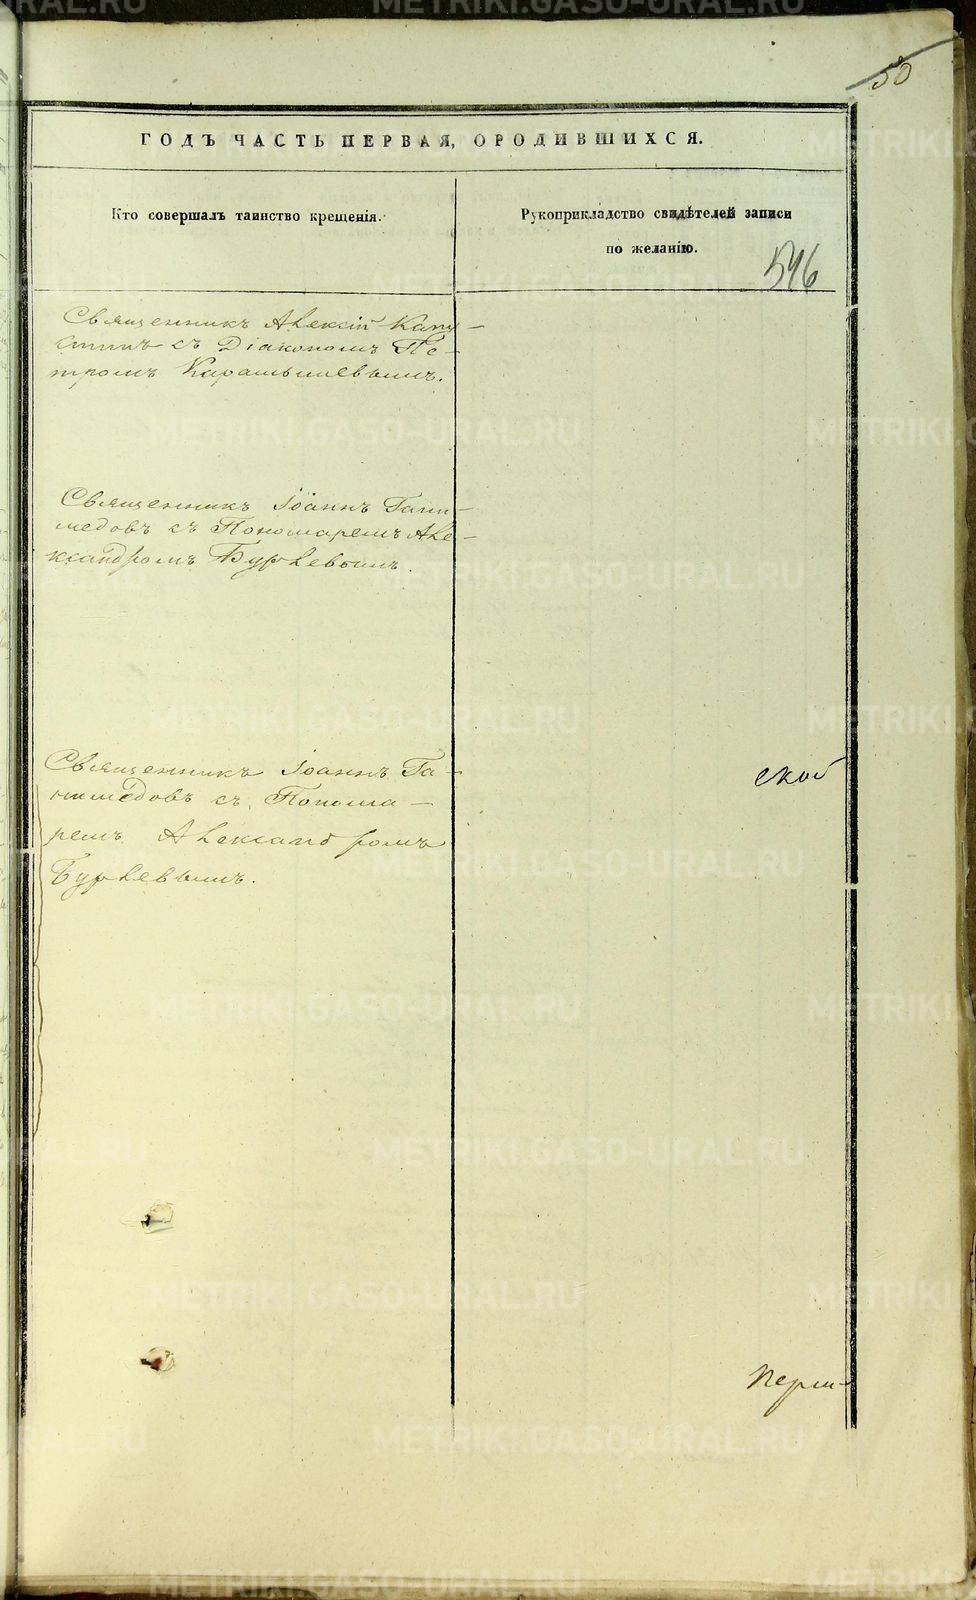 50
ГОДЪ ЧАСТЬ ПЕРВАЯ, О РОДИВШИХСЯ.
Кто совершалъ таинство крещенія.
Рукоприкладство свидѣтелей записи
по желанію.
546
Священникъ Алексій Капу-
стинъ съ Діакономъ Пе-
тромъ Карамышевымъ.
Священникъ Іоаннъ Гани-
медовъ съ Пономаремъ Але-
ксандромъ Бурлевымъ.
Священникъ Іоаннъ Га-
нимедовъ съ Понома-
ремъ Александромъ
Бурлевымъ.
ской
Перм-
METRIKI.GASO-URAL.RU